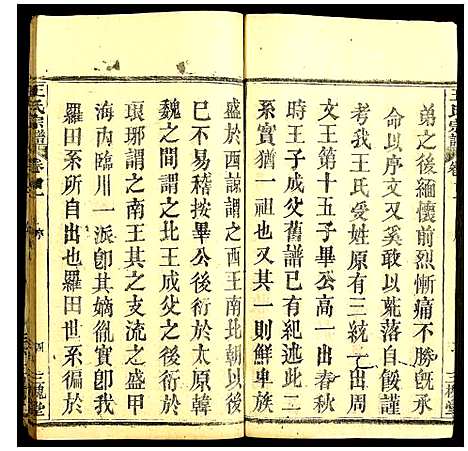 弟之後緬懷前烈慚痛不勝旣承
命以序文又奚敢以荒落自餒謹
考我王氏受姓原有三統一出周
文王第十五子畢公高一出春秋
時王子成父舊譜已載其二
系實猶一祖也又其一則鮮卑族
盛於西諒謂之西王南北朝以前
已不易稽按畢公後衍於太原韓
魏之間謂之北王成父之後衍於
琅琊謂之南王其之支流之盛甲
海內臨川一派卽其嫡胤實卽我
羅田系所自出也羅田世系徧於
王氏宗譜
卷首一
序
四
三槐堂